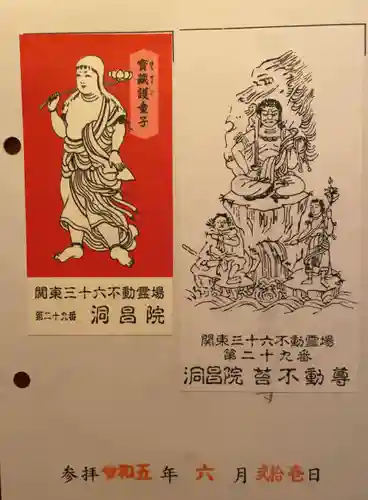 寳藏護童子
関東三十六不動霊場
第二十九番 洞昌院
関東三十六不動霊場
第二十九番
洞昌院 苔不動尊
参拝 令和五 年 六 月 弐拾壱日